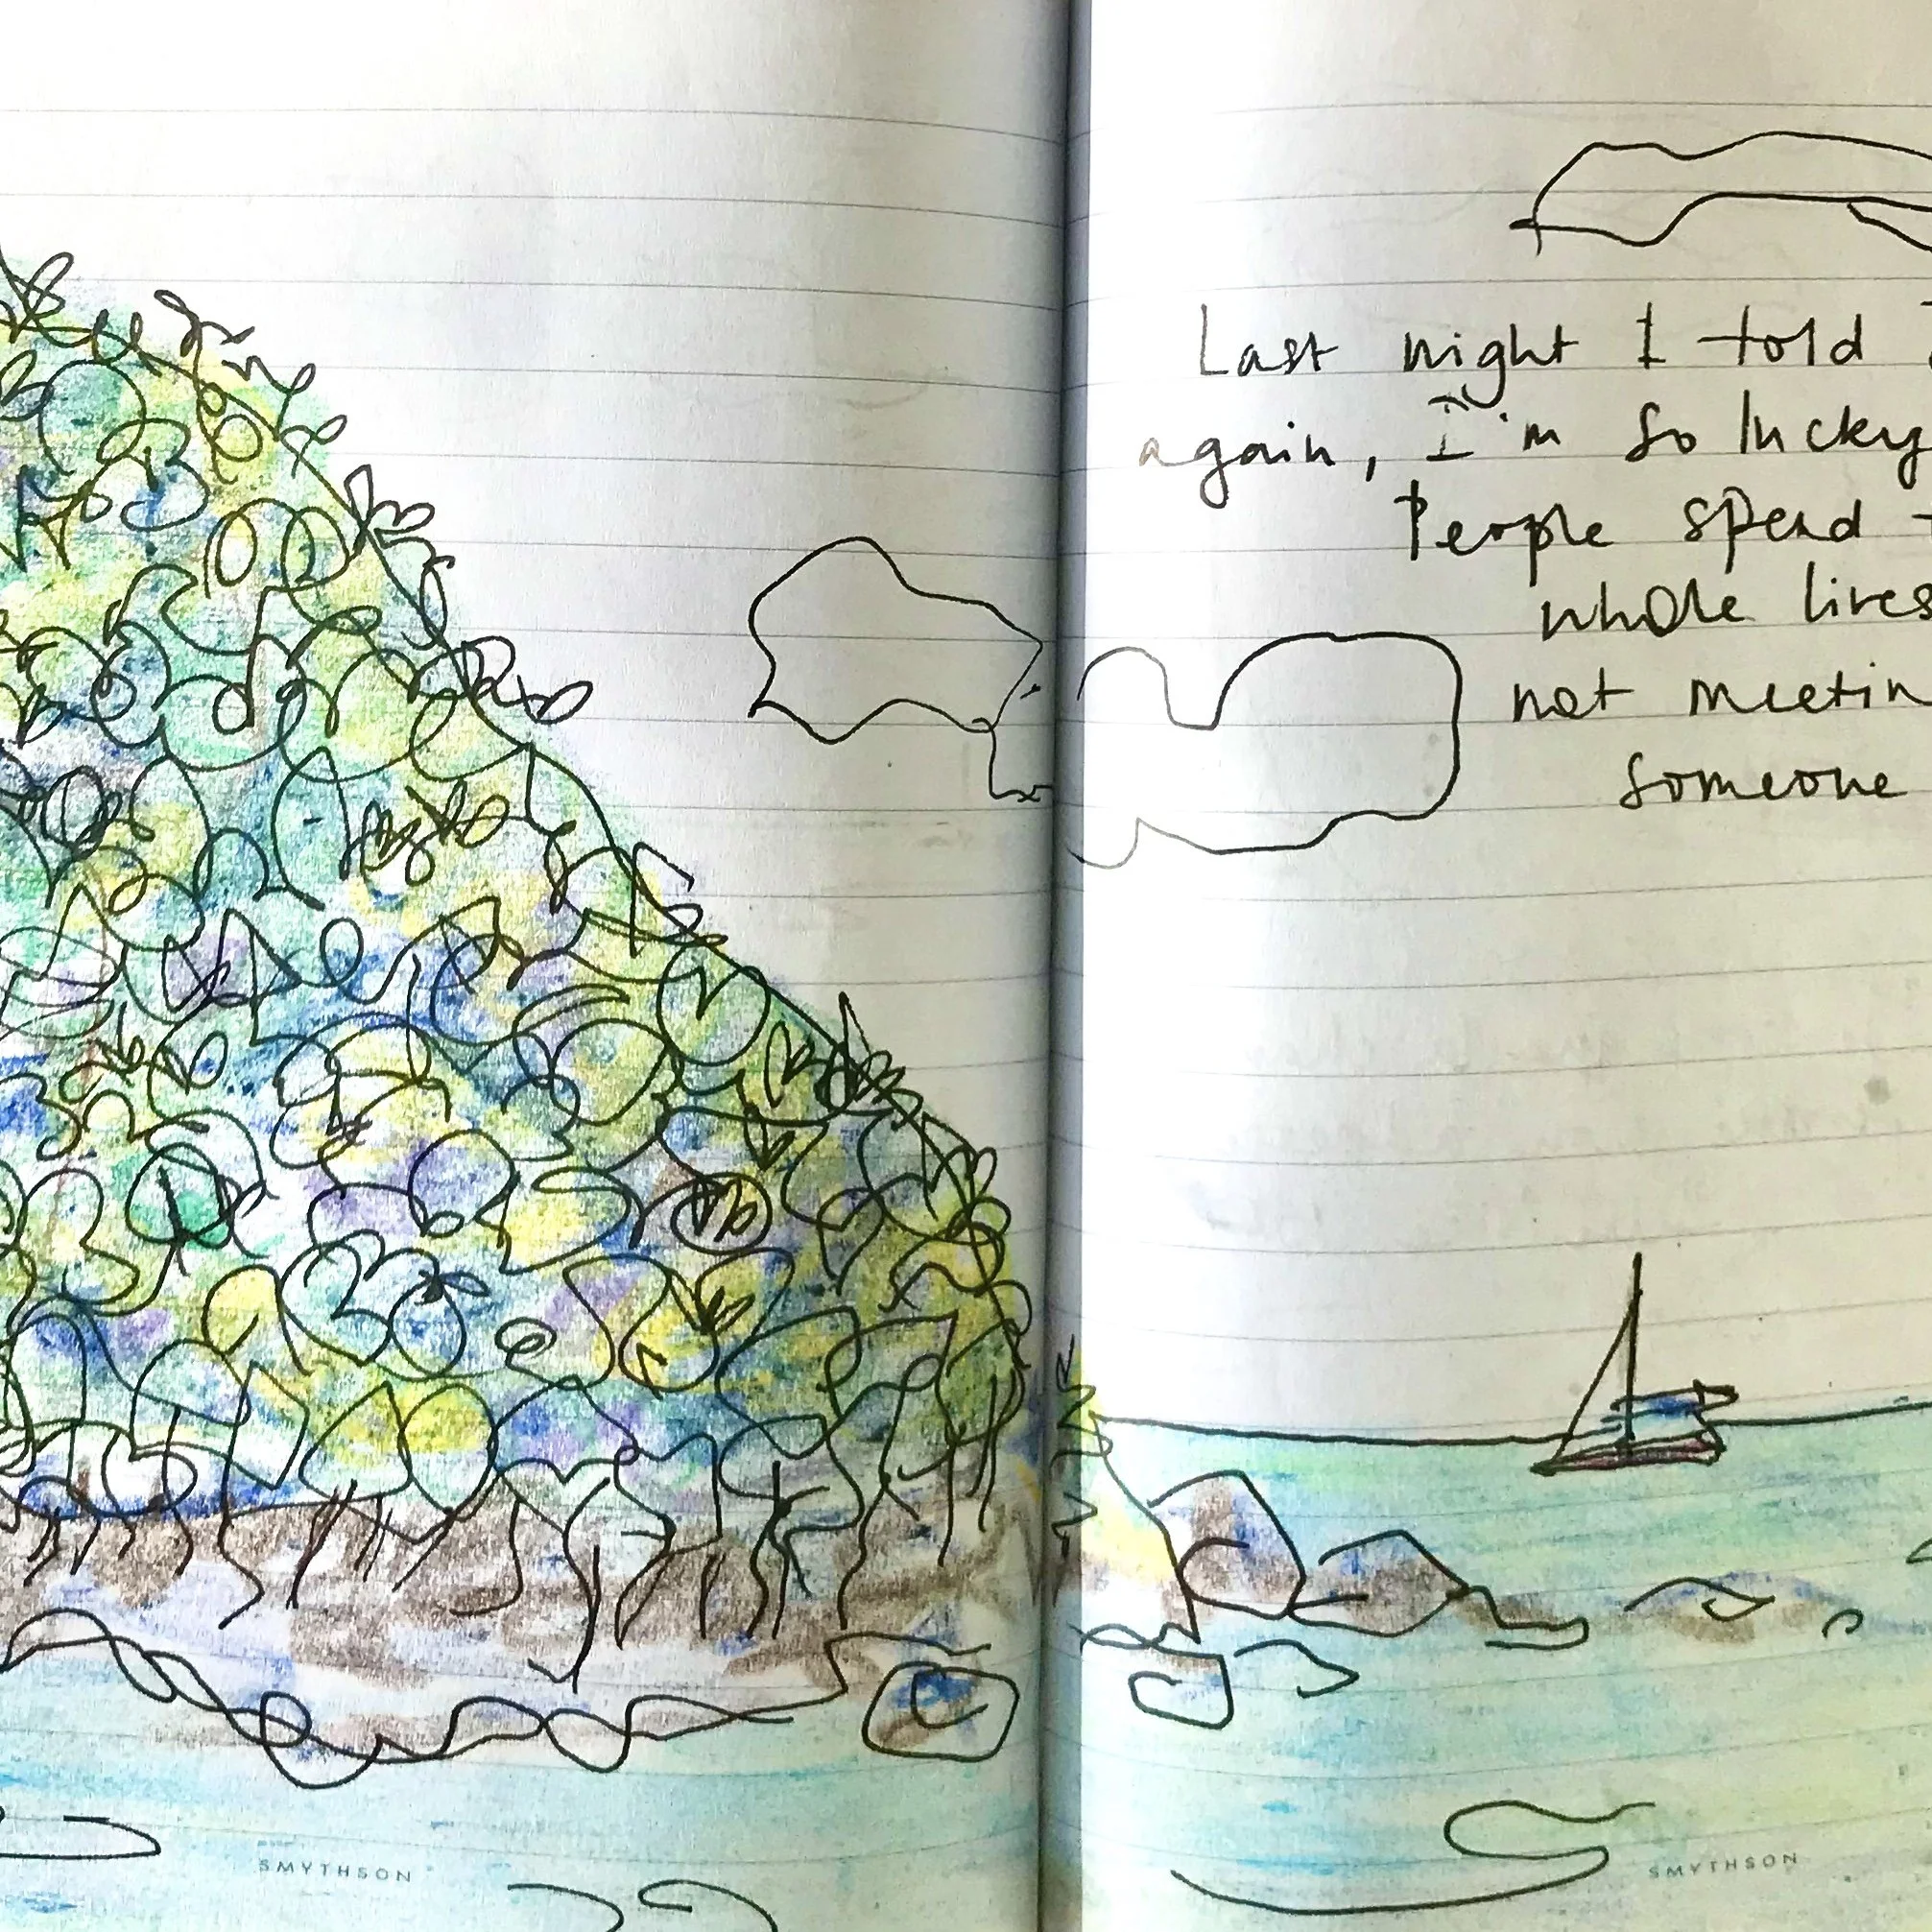 Last night I told
again, I'm so lucky
People spend
whole lives
not meetin
someone
SMYTHSON
SMYTHSON